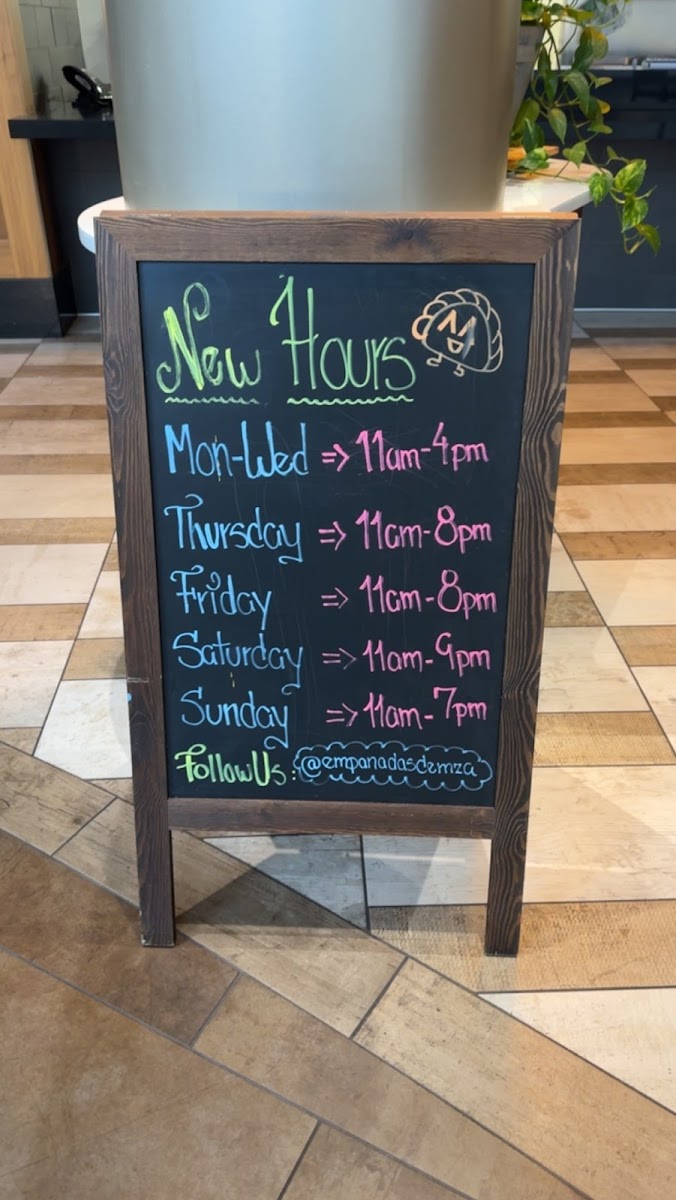 New Hours
Mon-Wed => 11am-4pm
Thursday => 11am-8pm
Friday => 11am-8pm
Saturday => 11am-9pm
Sunday => 11am-7pm
Follow Us: @empanadasdemza